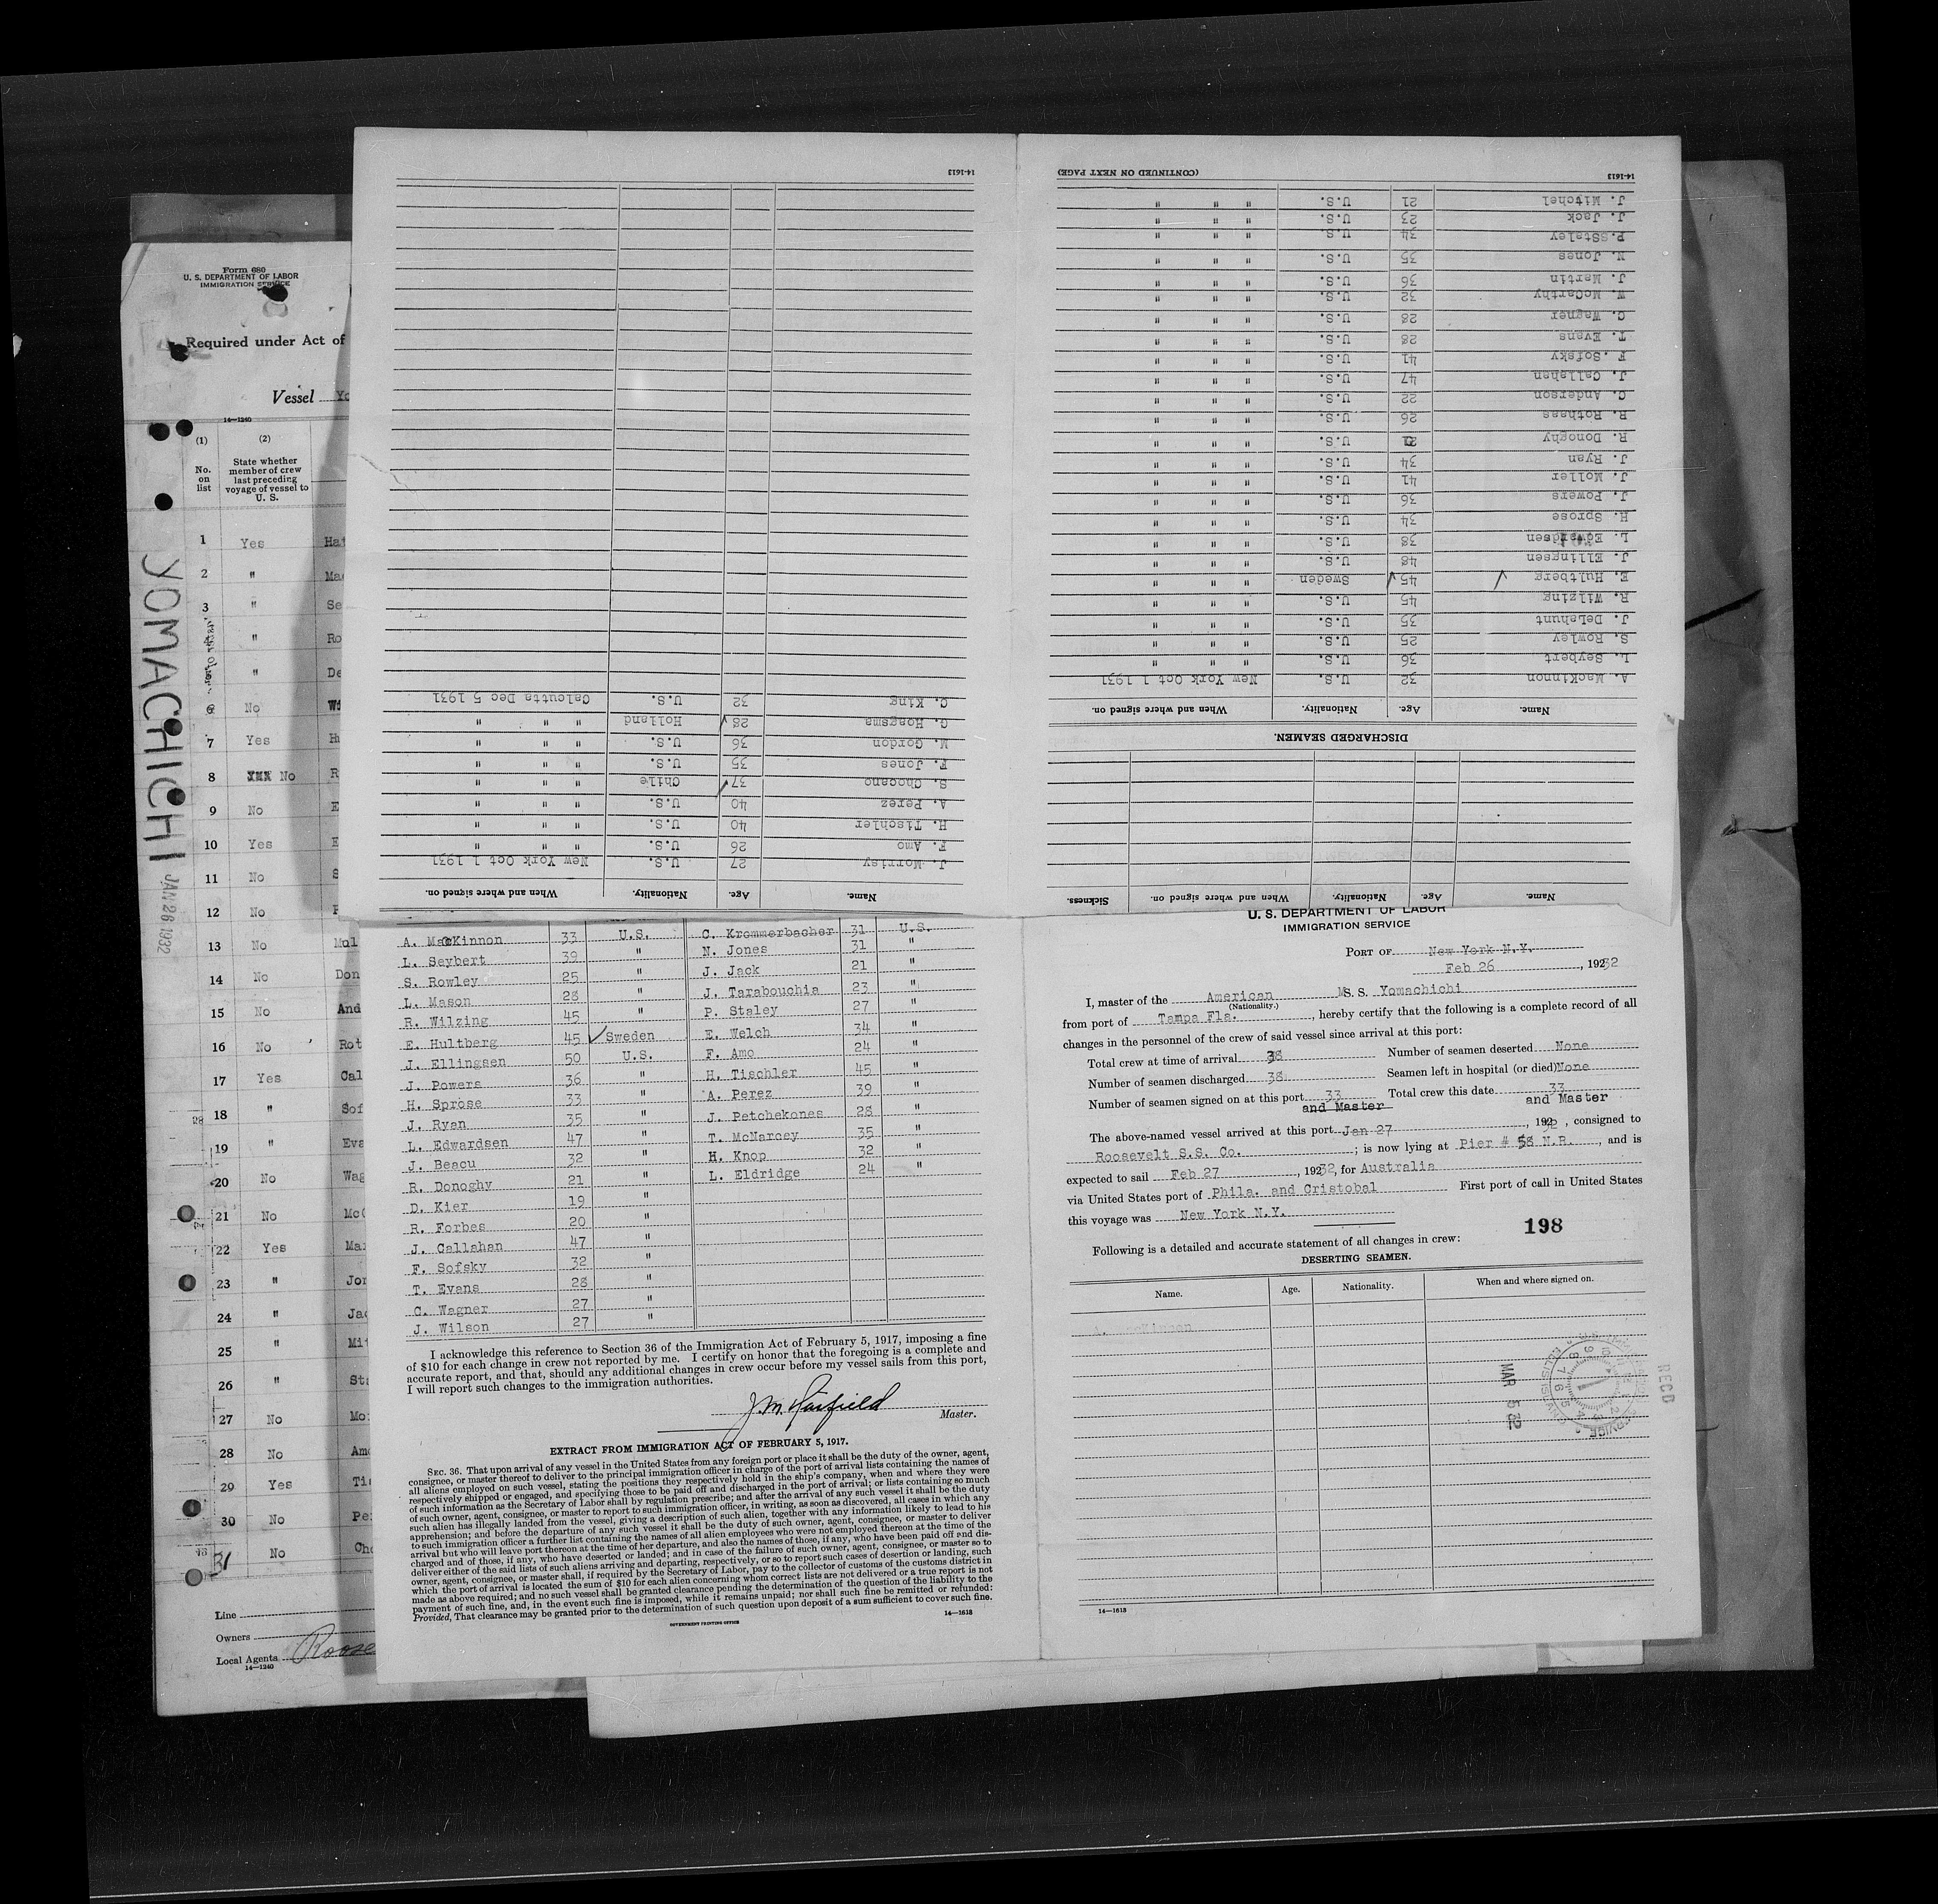 Form 680
U. S. DEPARTMENT OF LABOR
IMMIGRATION SERVICE
Required under Act of
Vessel Yo
14—1240
(1) (2)
No. on list State whether member of crew last preceding voyage of vessel to U. S.
1 Yes Hat
2 " Ma
3 " Se
" Ro
" De
6 No Wi
7 Yes H
8 XXX No R
9 No E
10 Yes E
11 No S
12 No
13 No Mol
14 No Don
15 No And
16 No Rot
17 Yes Cal
18 " Sof
19 " Eva
20 No Wag
21 No McC
22 Yes Mar
23 " Jon
24 " Jac
25 " Mit
26 " Sta
27 No Mo
28 No Amo
29 Yes Tis
30 No Pe
31 No Cho
Line
Owners
Local Agents Roose
14—1240
YOMACHICHI JAN 26 1932
Name. Age. Nationality. When and where signed on.
J. Morrisy 27 U.S. New York Oct 1 1931
F. Amo 26 U.S. " " "
H. Tischler 40 U.S. " " "
A. Perez 40 U.S. " " "
S. Chocano 37 Chile " " "
F. Jones 35 U.S. " " "
M. Gordon 36 U.S. " " "
G. Hoagsma 28 Holland " " "
C. King 32 U.S. Calcutta Dec 5 1931
14-1613
Name. Age. Nationality. When and where signed on. Sickness.
DISCHARGED SEAMEN.
Name. Age. Nationality. When and where signed on.
A. MacKinnon 32 U.S. New York Oct 1 1931
L. Seybert 36 U.S. " " "
S. Rowley 25 U.S. " " "
J. DeLahunt 35 U.S. " " "
R. Wilzing 45 U.S. " " "
E. Hultberg 45 Sweden " " "
J. Ellingsen 48 U.S. " " "
L. Edwardsen 38 U.S. " " "
H. Sprose 34 U.S. " " "
J. Powers 36 U.S. " " "
J. Moller 41 U.S. " " "
J. Ryan 34 U.S. " " "
R. Donoghy 21 U.S. " " "
R. Rothaas 26 U.S. " " "
C. Anderson 22 U.S. " " "
J. Callahan 47 U.S. " " "
F. Sofsky 41 U.S. " " "
T. Evans 28 U.S. " " "
C. Wagner 28 U.S. " " "
W. McCarthy 32 U.S. " " "
J. Martin 36 U.S. " " "
N. Jones 35 U.S. " " "
P. Staley 34 U.S. " " "
J. Jack 23 U.S. " " "
J. Mitchel 21 U.S. " " "
14-1613 (CONTINUED ON NEXT PAGE)
A. MacKinnon 33 U.S. C. Krommerbacher 31 U.S.
L. Seybert 39 " N. Jones 31 "
S. Rowley 25 " J. Jack 21 "
L. Mason 28 " J. Tarabouchia 23 "
R. Wilzing 45 " P. Staley 27 "
E. Hultberg 45 Sweden E. Welch 34 "
J. Ellingsen 50 U.S. F. Amo 24 "
J. Powers 36 " H. Tischler 45 "
H. Sprose 33 " A. Perez 39 "
J. Ryan 35 " J. Petchekones 28 "
L. Edwardsen 47 " T. McNarcey 35 "
J. Beacu 32 " H. Knop 32 "
R. Donoghy 21 " L. Eldridge 24 "
D. Kier 19 "
R. Forbes 20 "
J. Callahan 47 "
F. Sofsky 32 "
T. Evans 28 "
C. Wagner 27 "
J. Wilson 27 "
I acknowledge this reference to Section 36 of the Immigration Act of February 5, 1917, imposing a fine
of $10 for each change in crew not reported by me. I certify on honor that the foregoing is a complete and
accurate report, and that, should any additional changes in crew occur before my vessel sails from this port,
I will report such changes to the immigration authorities.
J M Hatfield
Master.
EXTRACT FROM IMMIGRATION ACT OF FEBRUARY 5, 1917.
SEC. 36. That upon arrival of any vessel in the United States from any foreign port or place it shall be the duty of the owner, agent,
consignee, or master thereof to deliver to the principal immigration officer in charge of the port of arrival lists containing the names of
all aliens employed on such vessel, stating the positions they respectively hold in the ship's company, when and where they were
respectively shipped or engaged, and specifying those to be paid off and discharged in the port of arrival; or lists containing so much
of such information as the Secretary of Labor shall by regulation prescribe; and after the arrival of any such vessel it shall be the duty
of such owner, agent, consignee, or master to report to such immigration officer, in writing, as soon as discovered, all cases in which any
such alien has illegally landed from the vessel, giving a description of such alien, together with any information likely to lead to his
apprehension; and before the departure of any such vessel it shall be the duty of such owner, agent, consignee, or master to deliver
to such immigration officer a further list containing the names of all alien employees who were not employed thereon at the time of the
arrival but who will leave port thereon at the time of her departure, and also the names of those, if any, who have been paid off and dis-
charged and of those, if any, who have deserted or landed; and in case of the failure of such owner, agent, consignee, or master so to
deliver either of the said lists of such aliens arriving and departing, respectively, or so to report such cases of desertion or landing, such
owner, agent, consignee, or master shall, if required by the Secretary of Labor, pay to the collector of customs of the customs district in
which the port of arrival is located the sum of $10 for each alien concerning whom correct lists are not delivered or a true report is not
made as above required; and no such vessel shall be granted clearance pending the determination of the question of the liability to the
payment of such fine, and, in the event such fine is imposed, while it remains unpaid; nor shall such fine be remitted or refunded:
Provided, That clearance may be granted prior to the determination of such question upon deposit of a sum sufficient to cover such fine.
GOVERNMENT PRINTING OFFICE 14—1613
U. S. DEPARTMENT OF LABOR
IMMIGRATION SERVICE
PORT OF New York N.Y.
Feb 26, 1932
I, master of the American MS. S. Yomachichi
(Nationality.)
from port of Tampa Fla., hereby certify that the following is a complete record of all
changes in the personnel of the crew of said vessel since arrival at this port:
Total crew at time of arrival 38 Number of seamen deserted None
Number of seamen discharged 38 Seamen left in hospital (or died) None
Number of seamen signed on at this port 33 Total crew this date 33
and Master and Master
The above-named vessel arrived at this port Jan 27, 1932, consigned to
Roosevelt S.S. Co.; is now lying at Pier # 58 N.R., and is
expected to sail Feb 27, 1932, for Australia
via United States port of Phila. and Cristobal First port of call in United States
this voyage was New York N.Y.
198
Following is a detailed and accurate statement of all changes in crew:
DESERTING SEAMEN.
Name. Age. Nationality. When and where signed on.
REC'D
MAR 5 32
14—1613